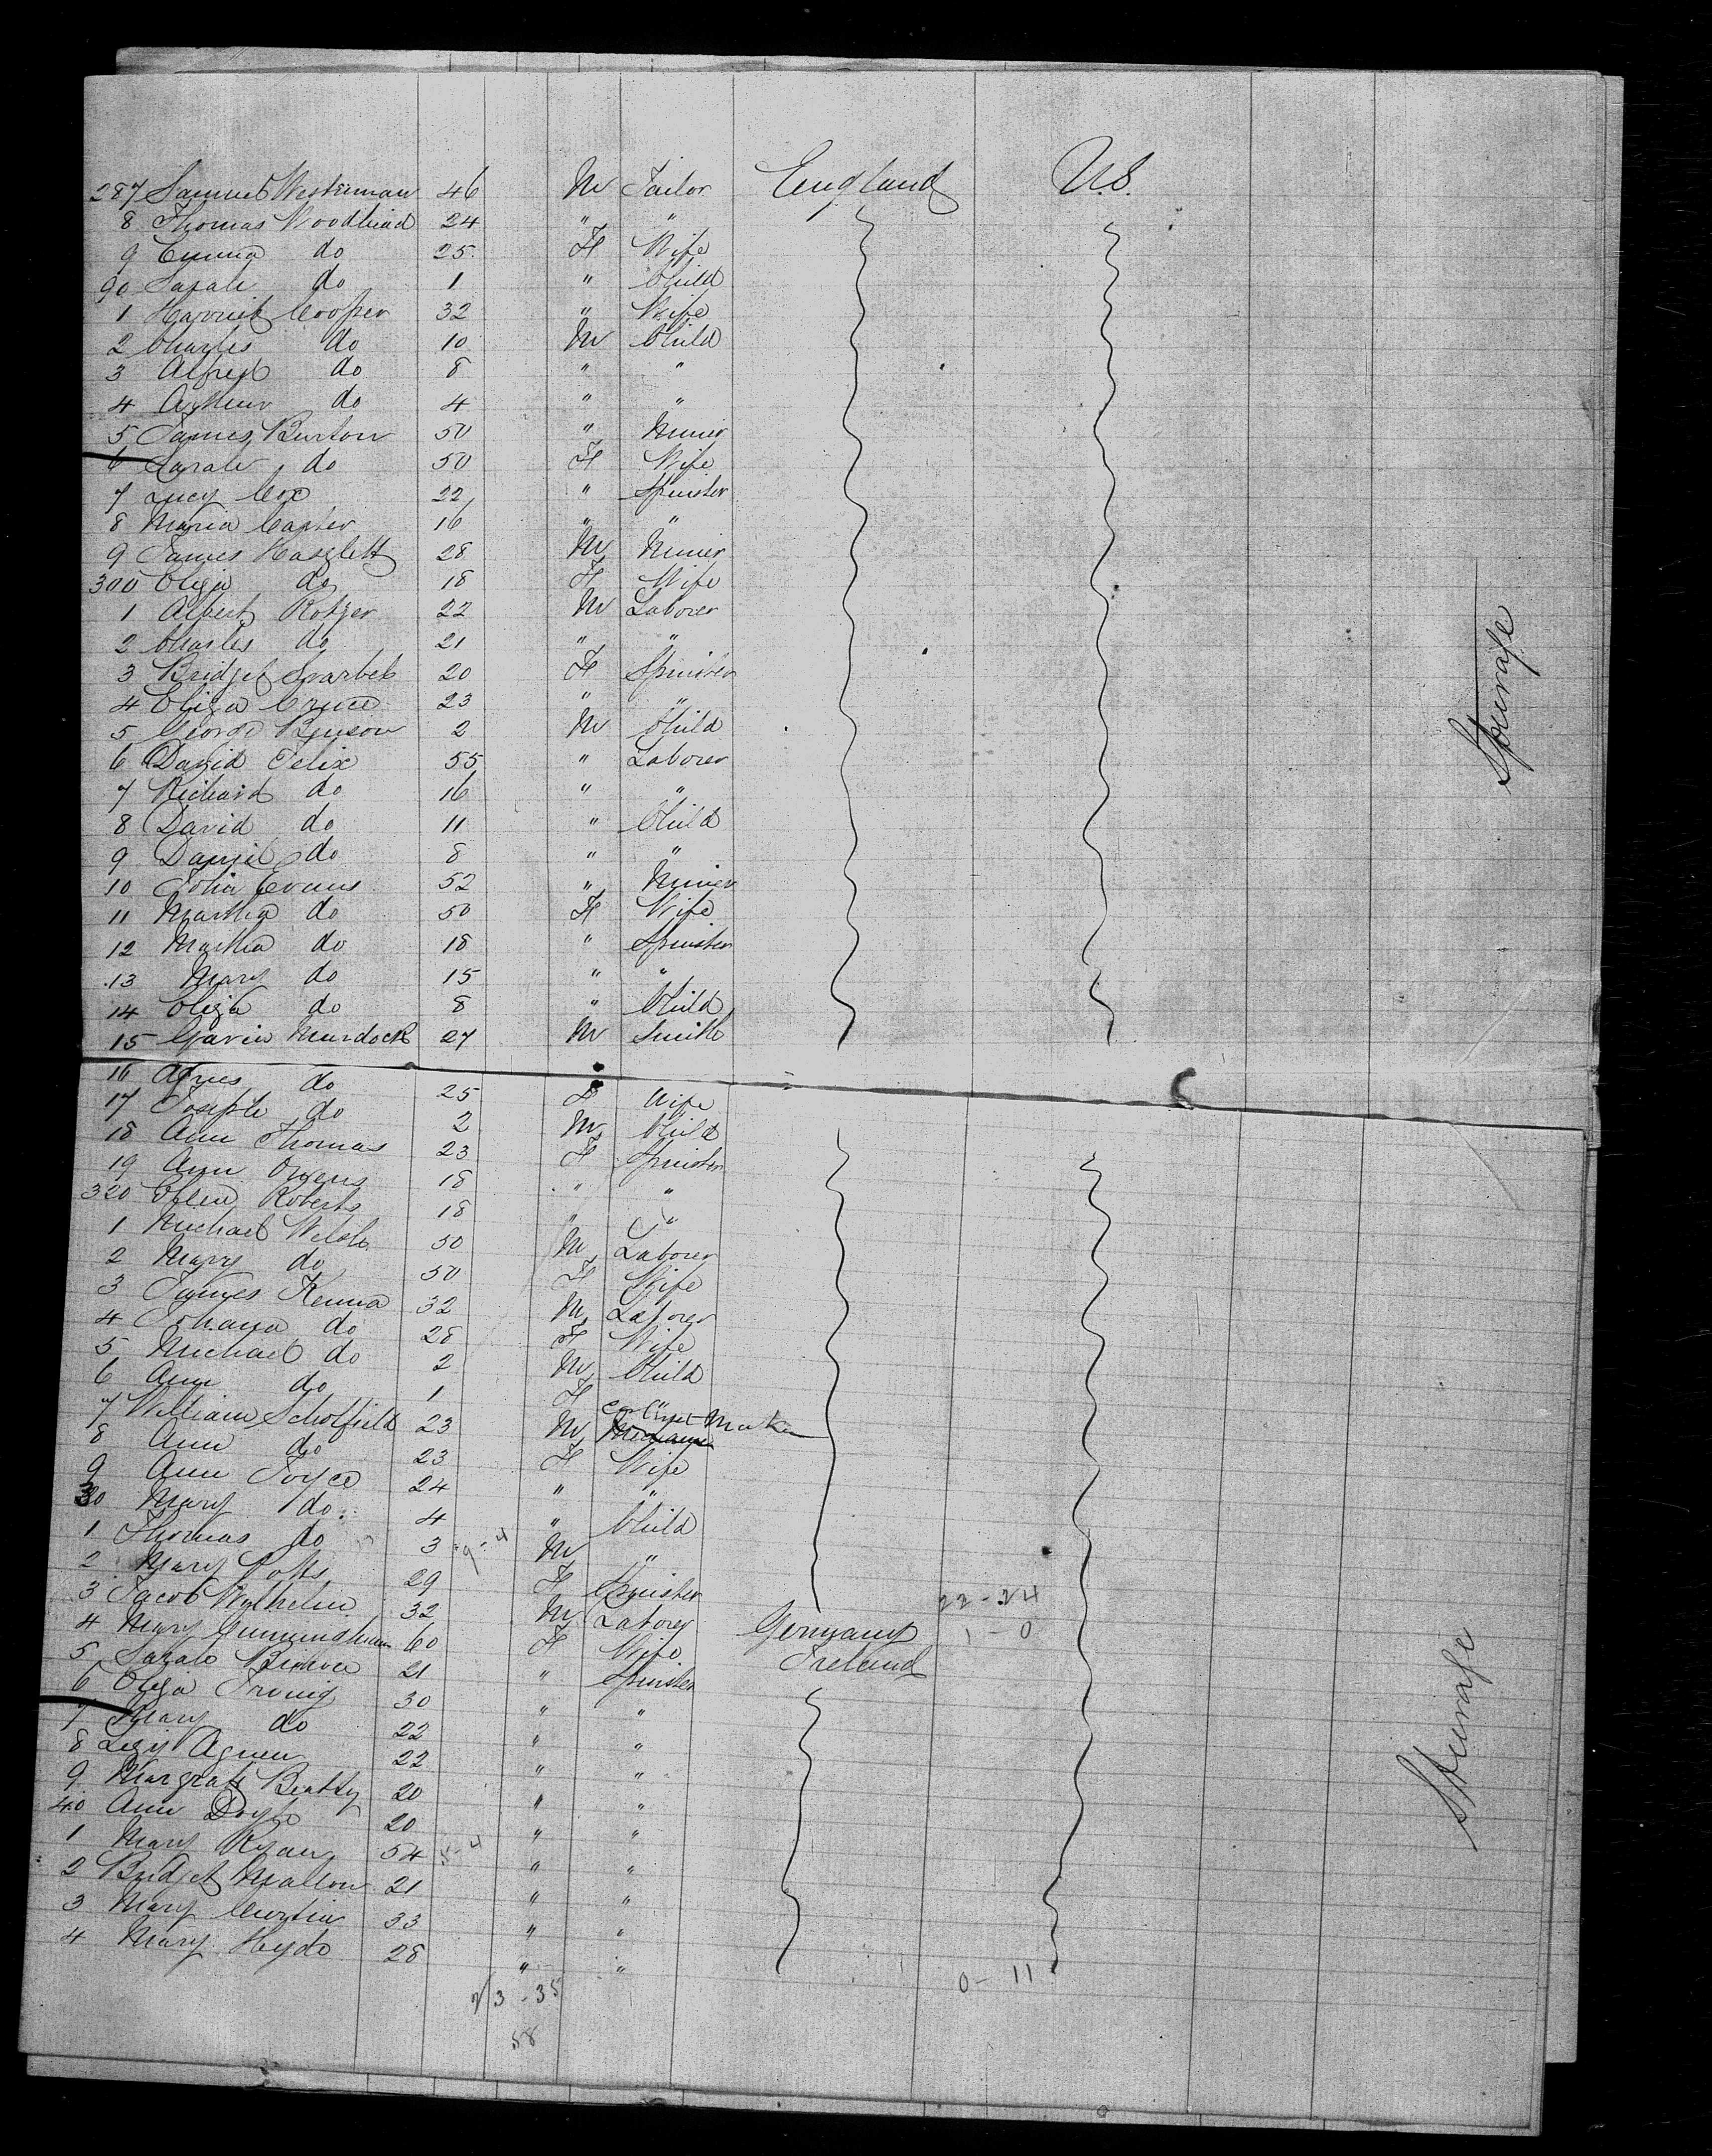 287 Samuel Westerman 46 M Tailor England U.S.
8 Thomas Woodhead 24 " "
9 Emma do 25 F Wife
90 Sarah do 1 " Child
1 Harriet Cooper 32 " Wife
2 Charles do 10 M Child
3 Alfred do 8 " "
4 Arthur do 4 " "
5 James Burton 50 " Miner
6 Sarah do 50 F Wife
7 Lucy Cox 22 " Spinster
8 Maria Carter 16 " "
9 James Haszlett 28 M Miner
300 Eliza do 18 F Wife
1 Albert Rotger 22 M Laborer
2 Charles do 21 " "
3 Bridget 20 F Spinster
4 Eliza 23 " "
5 George Benson 2 M Child
6 David Felix 55 " Laborer
7 Richard do 16 " "
8 David do 11 " Child
9 Daniel do 8 " "
10 John Evans 52 " Miner
11 Martha do 50 F Wife
12 Martha do 18 " Spinster
13 Mary do 15 " "
14 Eliza do 8 " Child
15 Gavin Murdock 27 M Smith
Steerage
16 Agnes do 25 F Wife
17 Joseph do 2 M Child
18 Ann Thomas 23 F Spinster
19 Ann Owens 18 " "
320 Ellen Roberts 18 " "
1 Michael Welsh 50 M Laborer
2 Mary do 50 F Wife
3 James Kenna 32 M Laborer
4 Johana do 28 F Wife
5 Michael do 2 M Child
6 Ann do 1 F "
7 William Scholfield 23 M Cabinet Maker
8 Ann do 23 F Wife
9 Ann Joyce 24 " "
30 Mary do 4 " Child
1 Thomas do 3 9-4 M "
2 Mary Potts 29 F Spinster 22-24
3 Jacob Wilhelm 32 M Laborer Germany 1-0
4 Mary Cunningham 60 F Wife Ireland
5 Sarah 21 " Spinster
6 Eliza Irving 30 " "
7 Mary do 22 " "
8 Lizzy Agnew 22 " "
9 Margrate Beatty 20 " "
40 Ann Doyle 20 " "
1 Mary Ryan 54 5-4 " "
2 Bridget Mallon 21 " "
3 Mary Curtin 33 " "
4 Mary Hyde 28 " "
0-11
23-35
58
Steerage